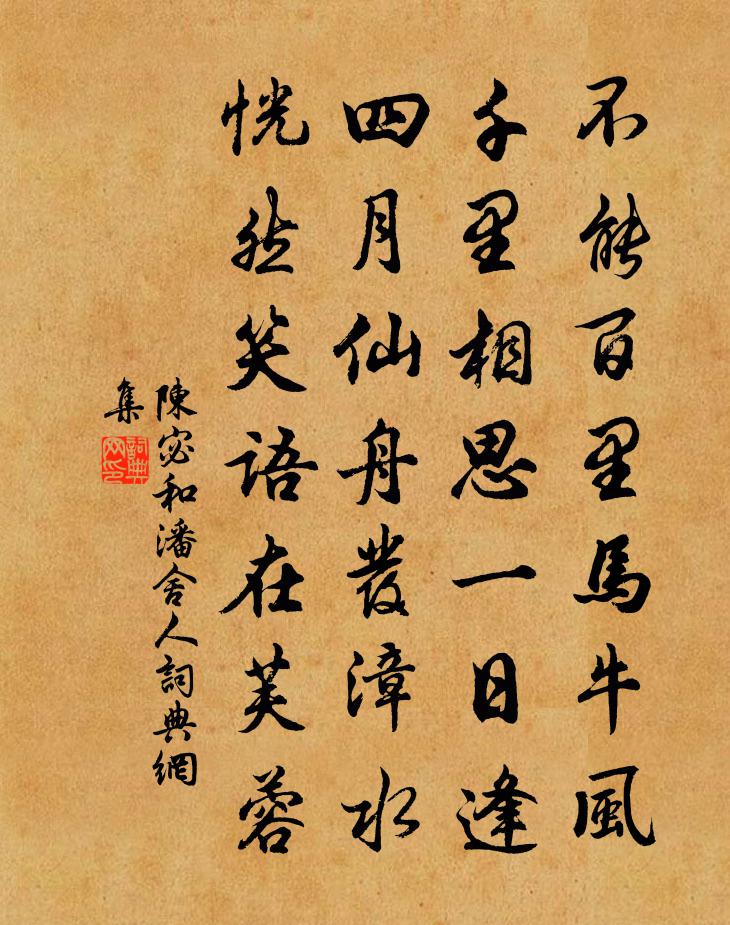 不能百里馬牛風
千里相思一日逢
四月仙舟發漳水
恍然笑語在芙蓉
陳宓和潘舍人詞典網
集
詞典網印